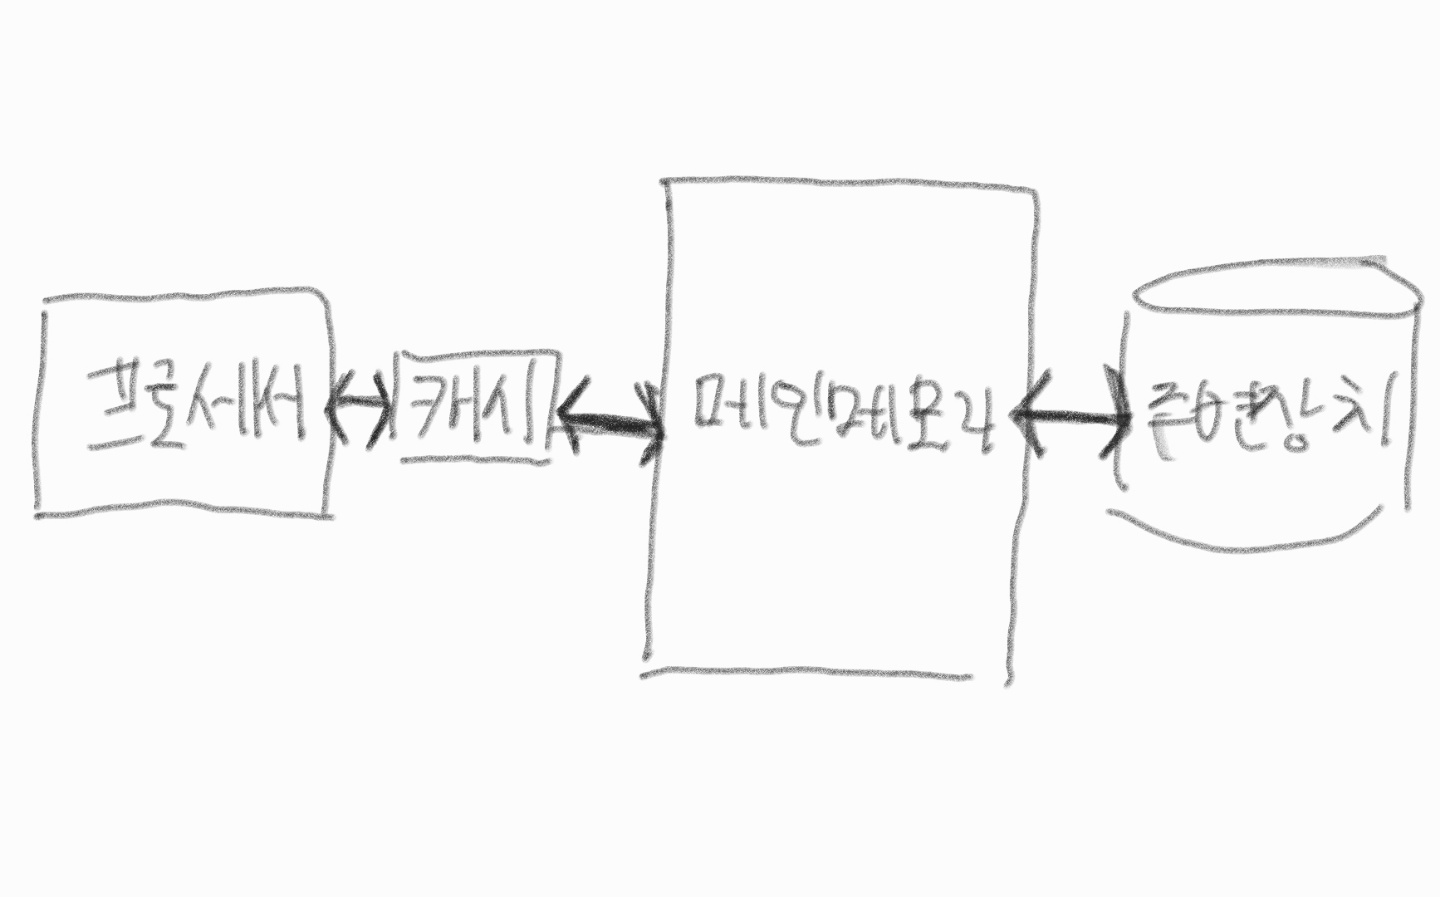 프로세서
캐시
메인메모리
주변장치